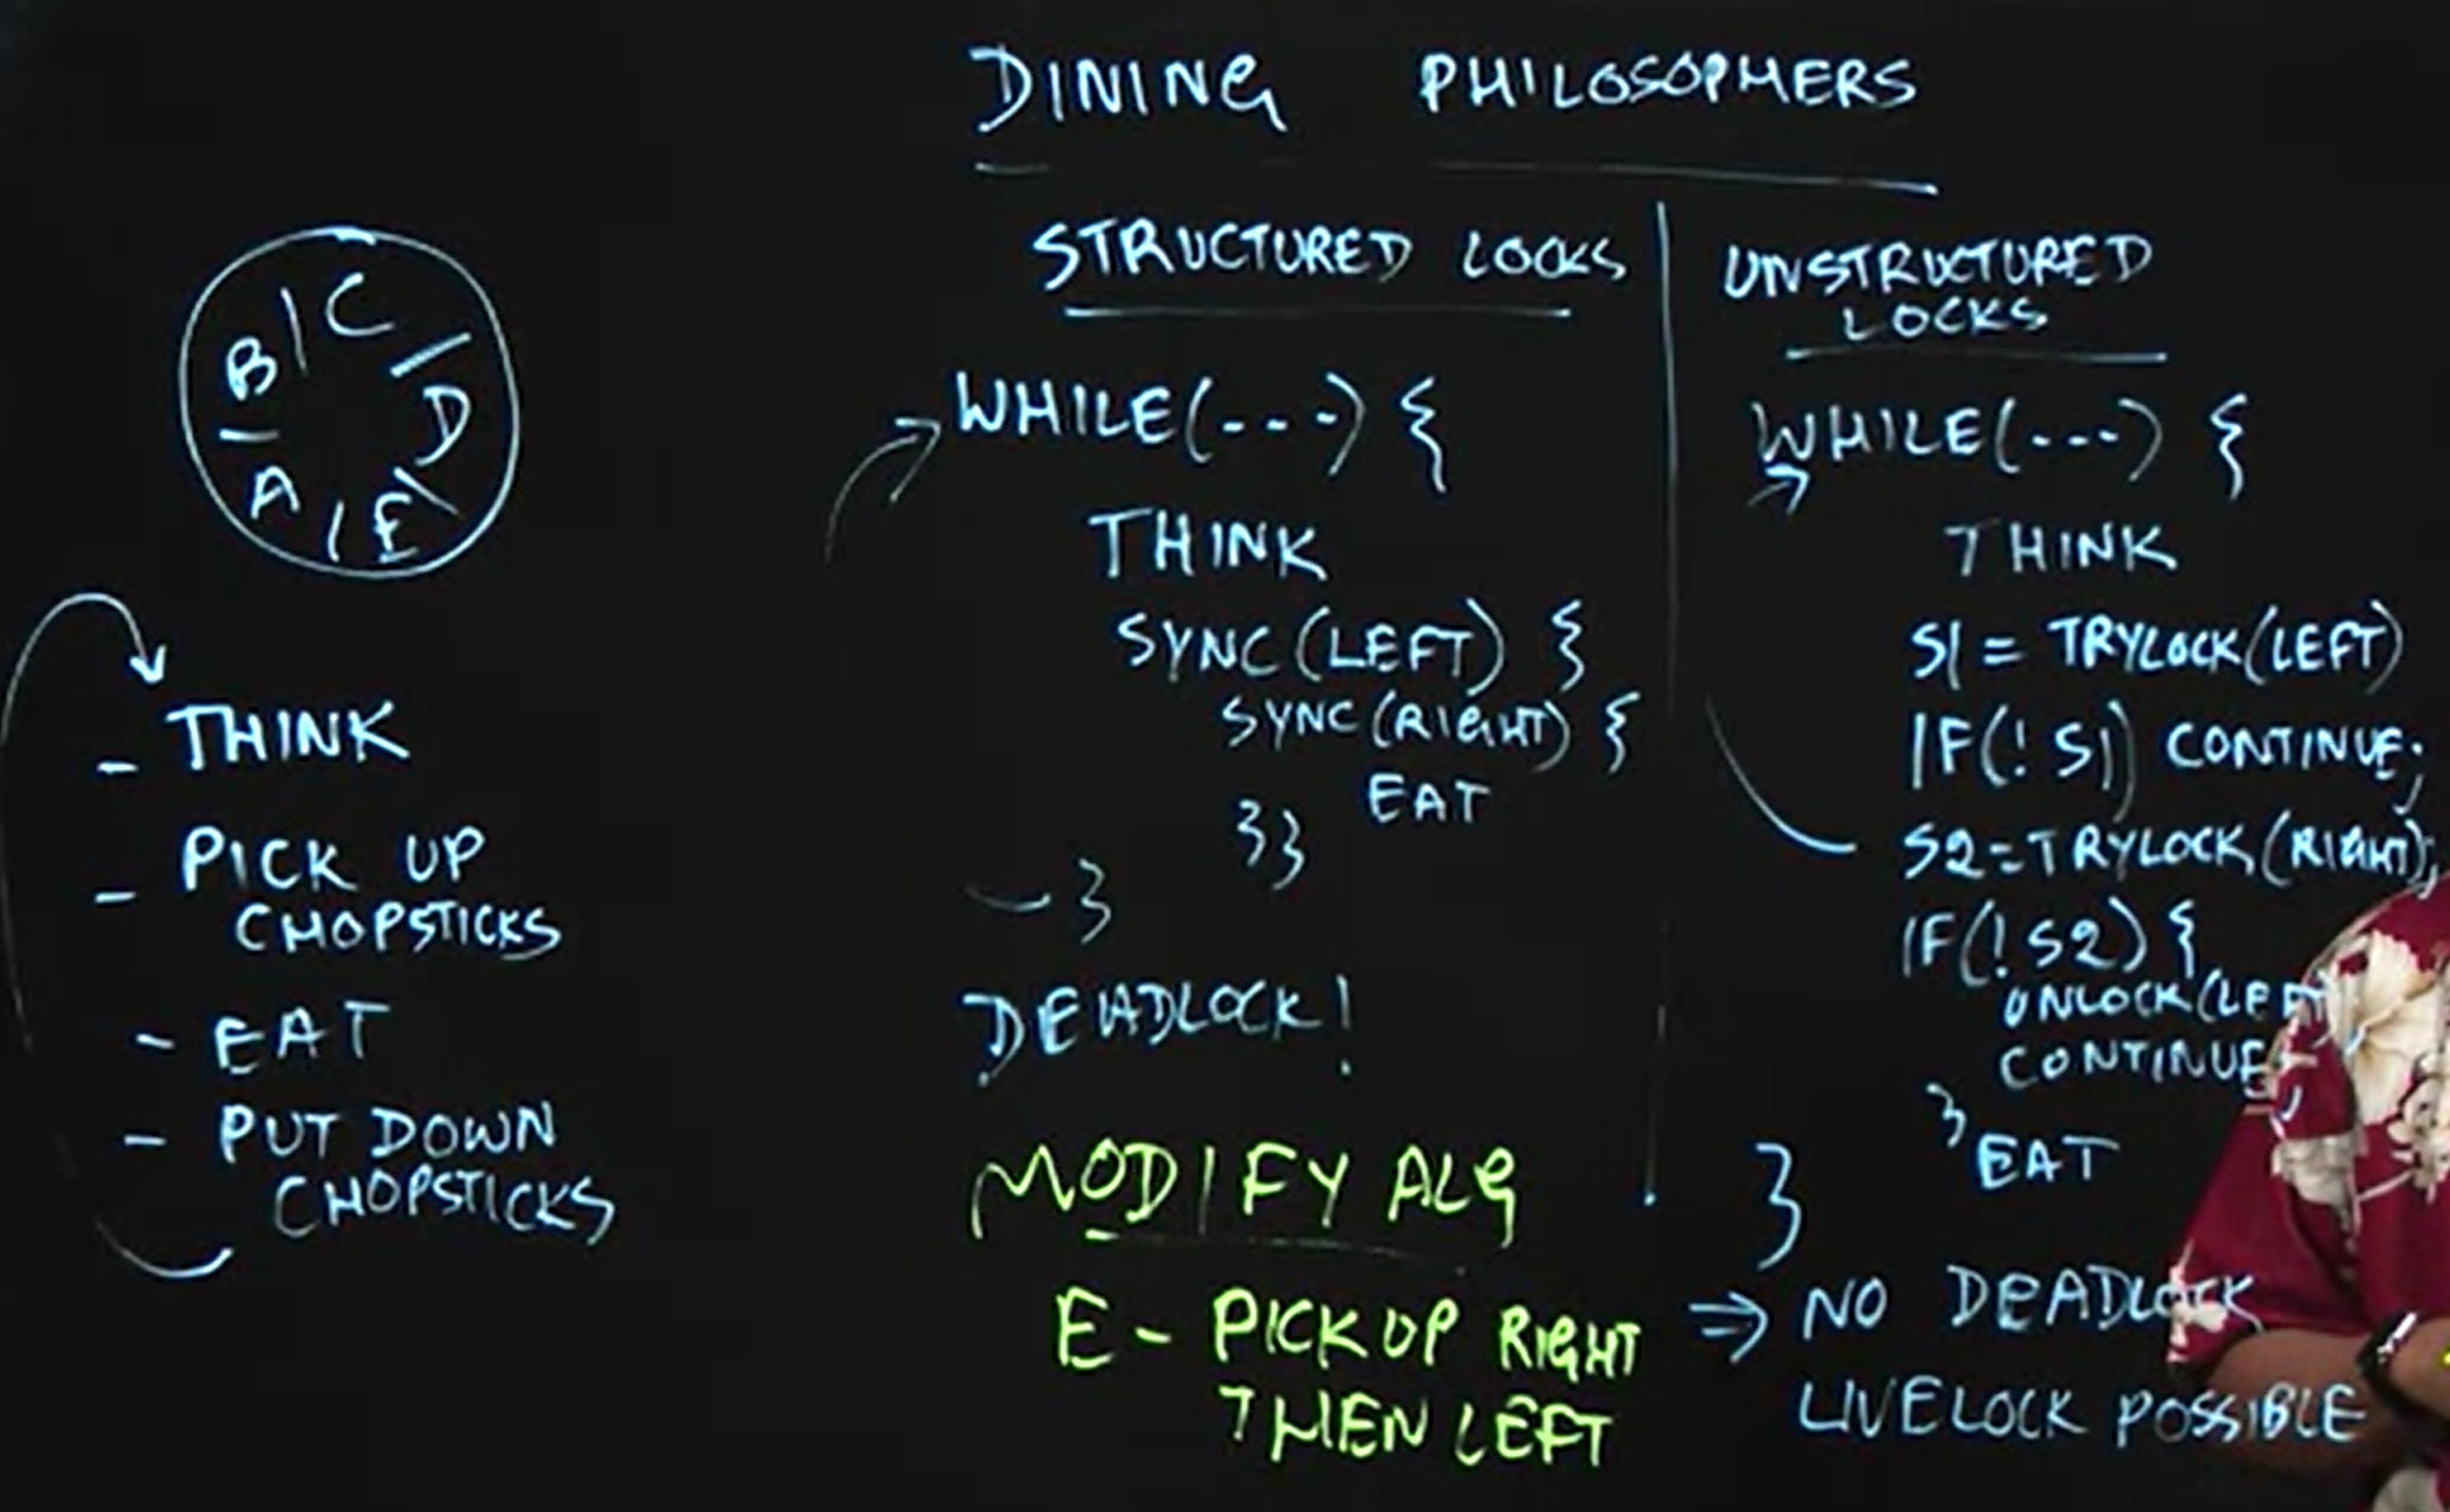 DINING PHILOSOPHERS
B | C / D \ E / A —
- THINK
- PICK UP
CHOPSTICKS
- EAT
- PUT DOWN
CHOPSTICKS
STRUCTURED LOCKS
WHILE(---) {
THINK
SYNC(LEFT) {
SYNC(RIGHT) {
EAT
}}
}
DEADLOCK!
MODIFY ALG
E - PICK UP RIGHT
THEN LEFT
UNSTRUCTURED
LOCKS
WHILE(---) {
THINK
S1 = TRYLOCK(LEFT)
IF(!S1) CONTINUE;
S2=TRYLOCK(RIGHT);
IF(!S2) {
UNLOCK(LEFT
CONTINUE
}
EAT
}
⇒ NO DEADLOCK
LIVELOCK POSSIBLE